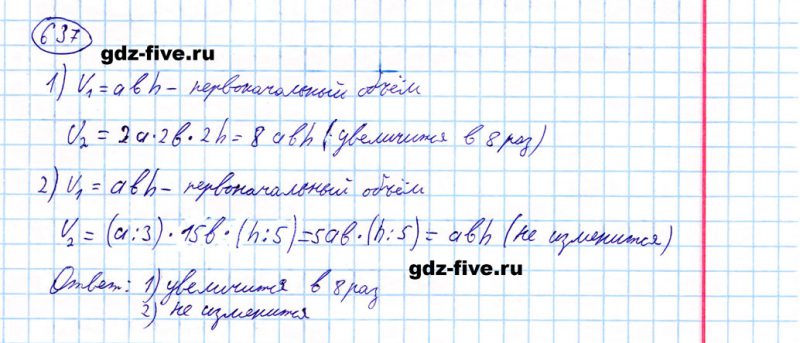 637
gdz-five.ru
1) V₁ = abh - первоначальный объём
V₂ = 2a·2b·2h = 8 abh (увеличится в 8 раз)
2) V₁ = abh - первоначальный объём
V₂ = (a:3)·15b·(h:5) = 5ab·(h:5) = abh (не изменится)
gdz-five.ru
Ответ: 1) увеличится в 8 раз
2) не изменится